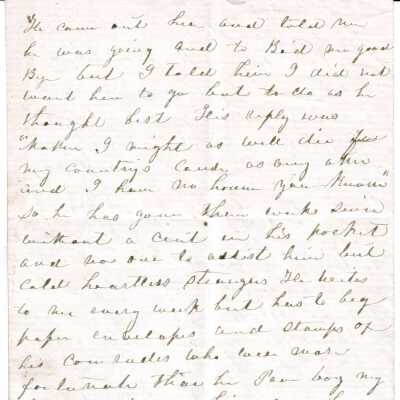 He came out her and told me
he was going and to Bid me good
By but I told him I did not
want him to go but to do as he
thought best His reply was
"Mother I might as well die for
my countrys Cause as any other
and I have no home you Know"
so he has gone three weeks since
without a cent in his pocket
and no one to assist him but
cold heartless strangers He writes
to me every week but has to beg
paper envelopes and stamps of
his comrades who were more
fortunate than he Poor boy my